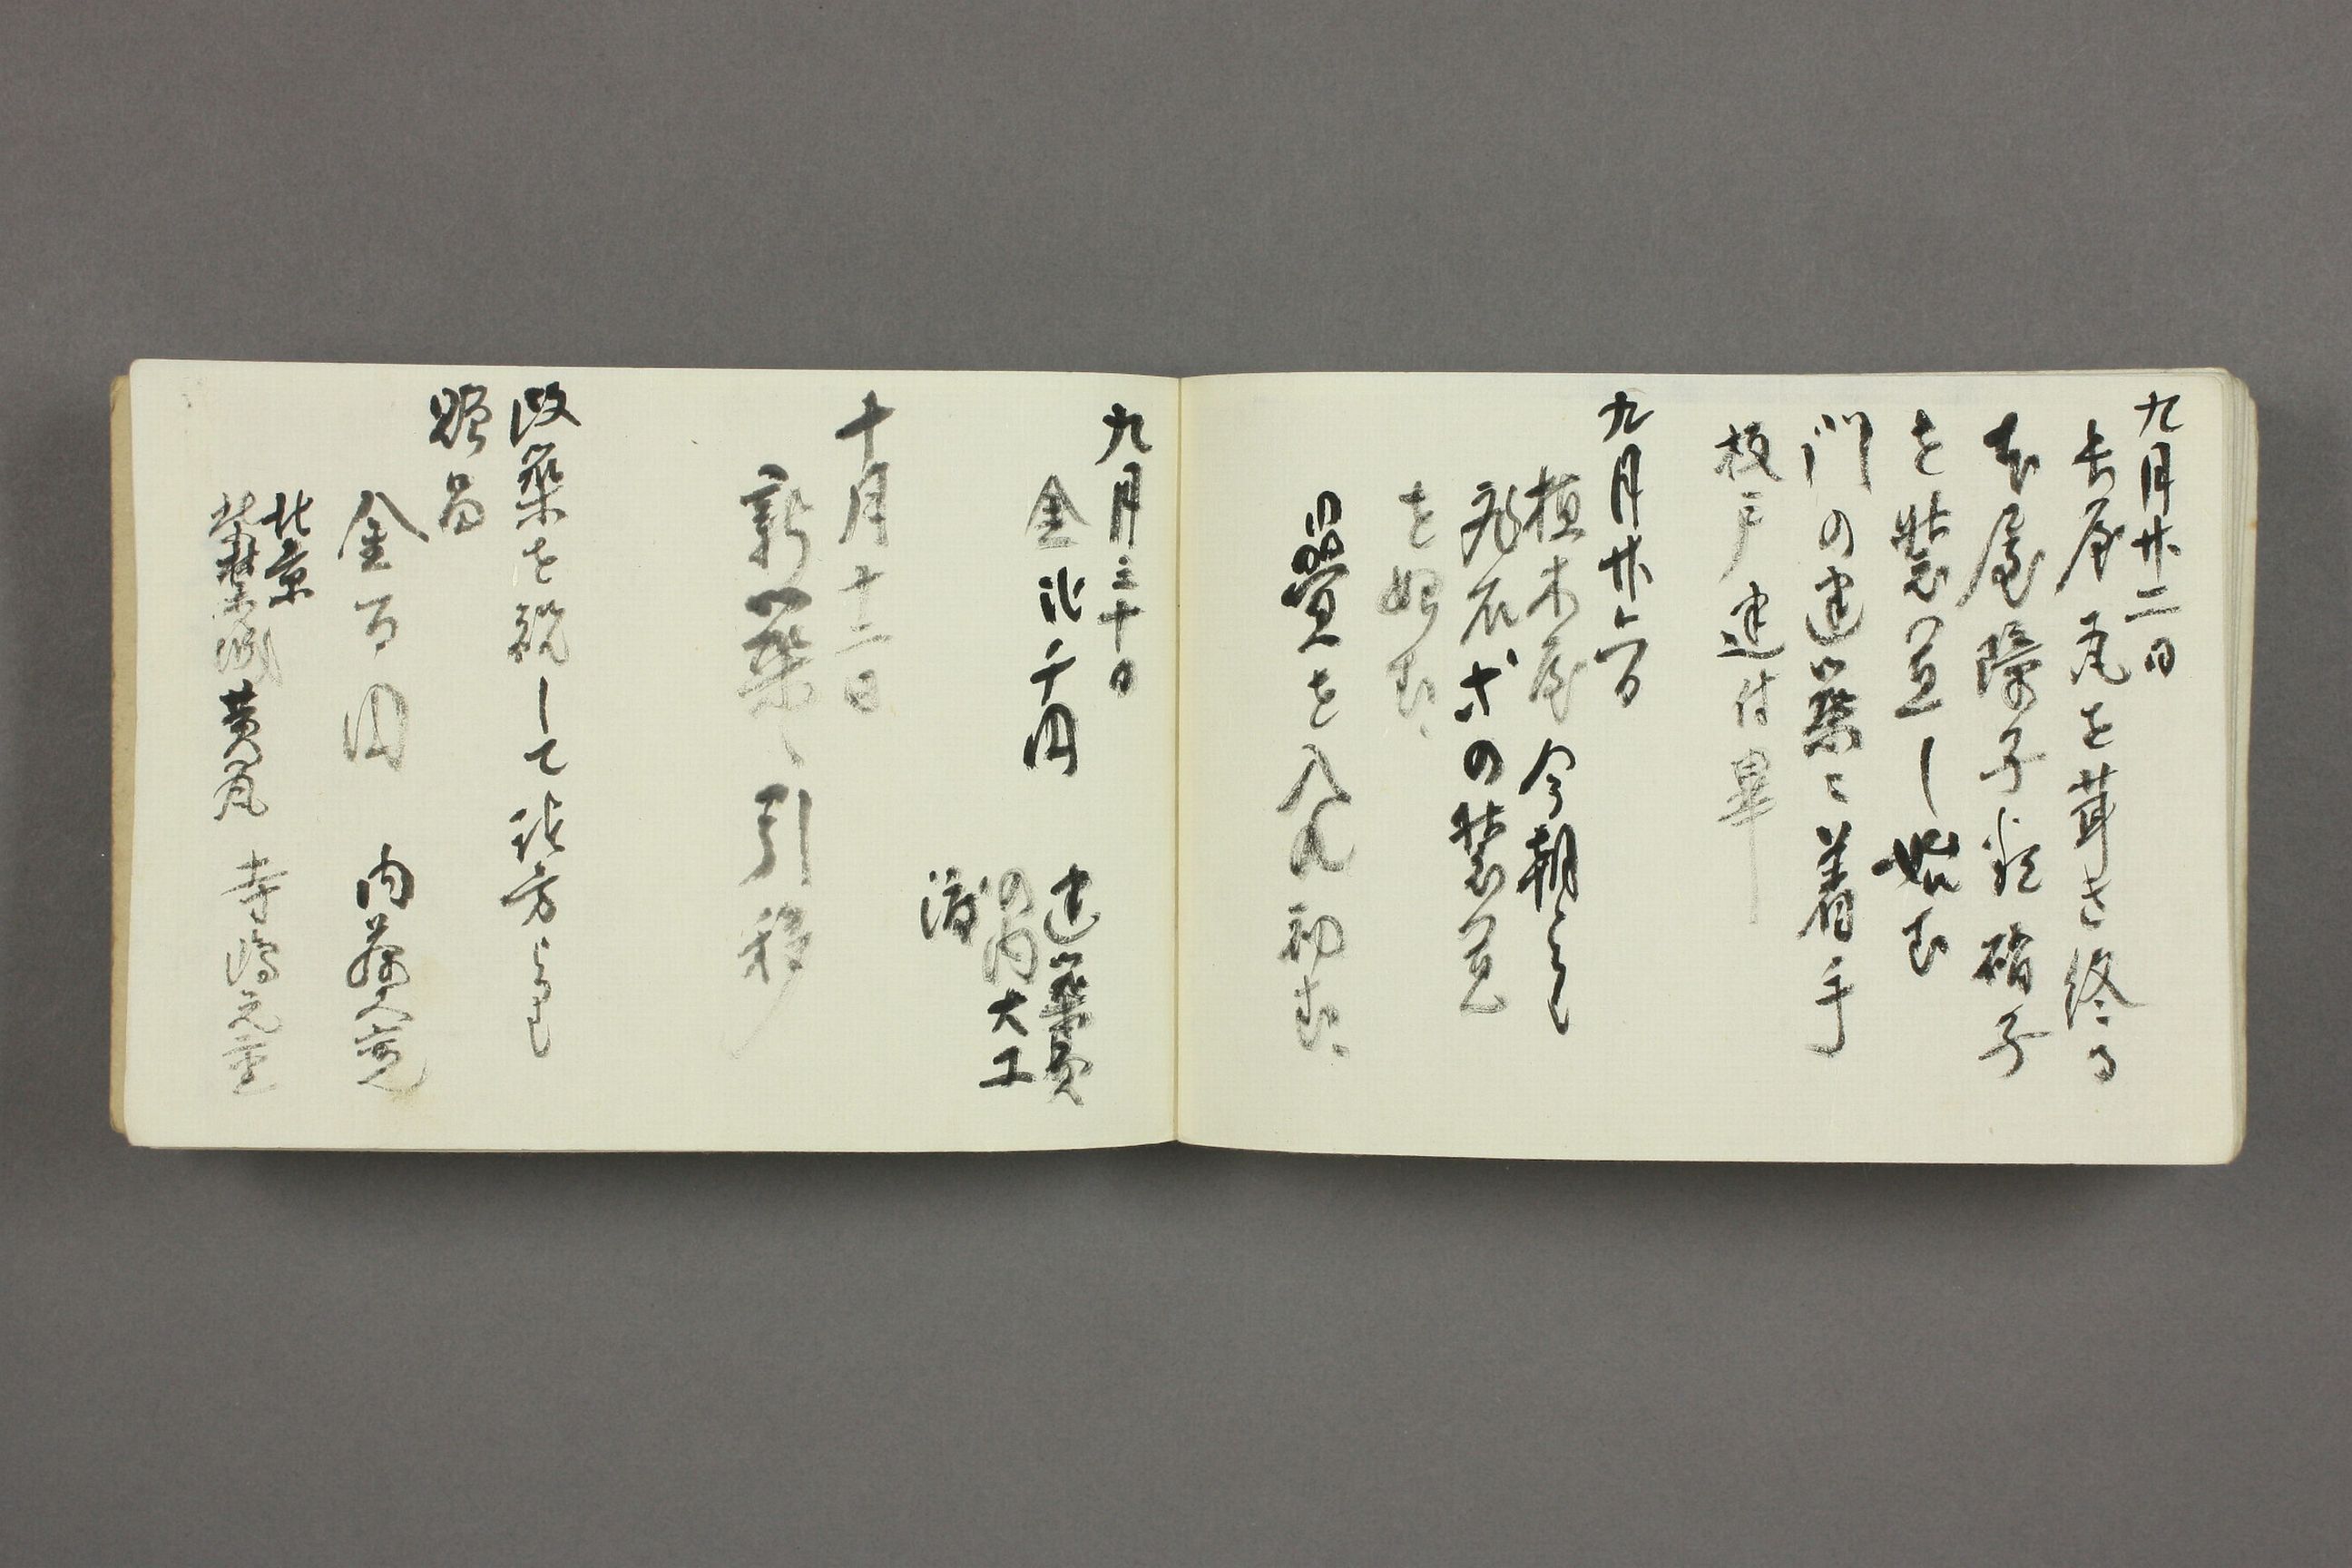 九月廿二日
長屋瓦を葺き終る
本屋障子から硝子
を装置し始む
門の建築ニ着手
板戸建付畢
九月廿六日
植木屋今朝より
飛石等の装置
を始む
畳を入れ初む
九月三十日
金弐千円
建築費
の内大工
渡
十月十二日
新築へ引移
改築を祝して諸方より
贈品
金百円
内藤久寛
北京
紫禁城黄瓦 寺嶋